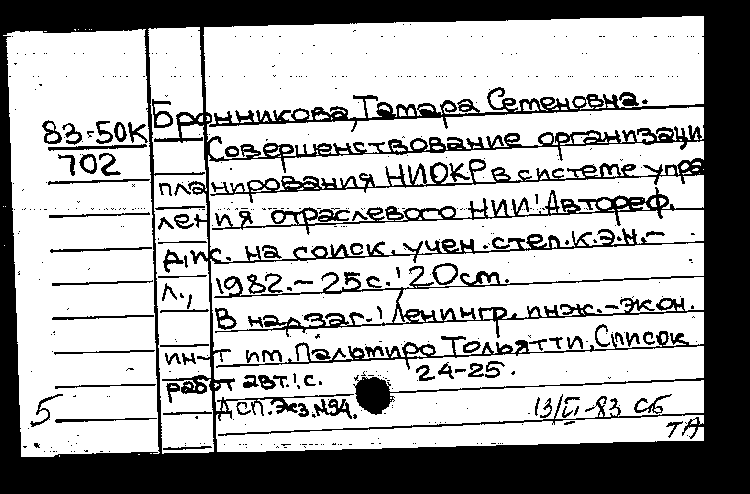 Бронникова, Тамара Семеновна.
83-50К
702
Совершенствование организаци
планирования НИОКР в системе упра
ления отраслевого НИИ: Автореф.
дис. на соиск. учен. степ. к.э.н.-
Л., 1982.- 25 с.; 20 см.
В надзаг.: Ленингр. инж.-экон.
ин-т им. Пальмиро Тольятти, Список
работ авт.: с. 24-25.
ДСП. Экз. №94.
5
13/VI-83 СБ
ТА